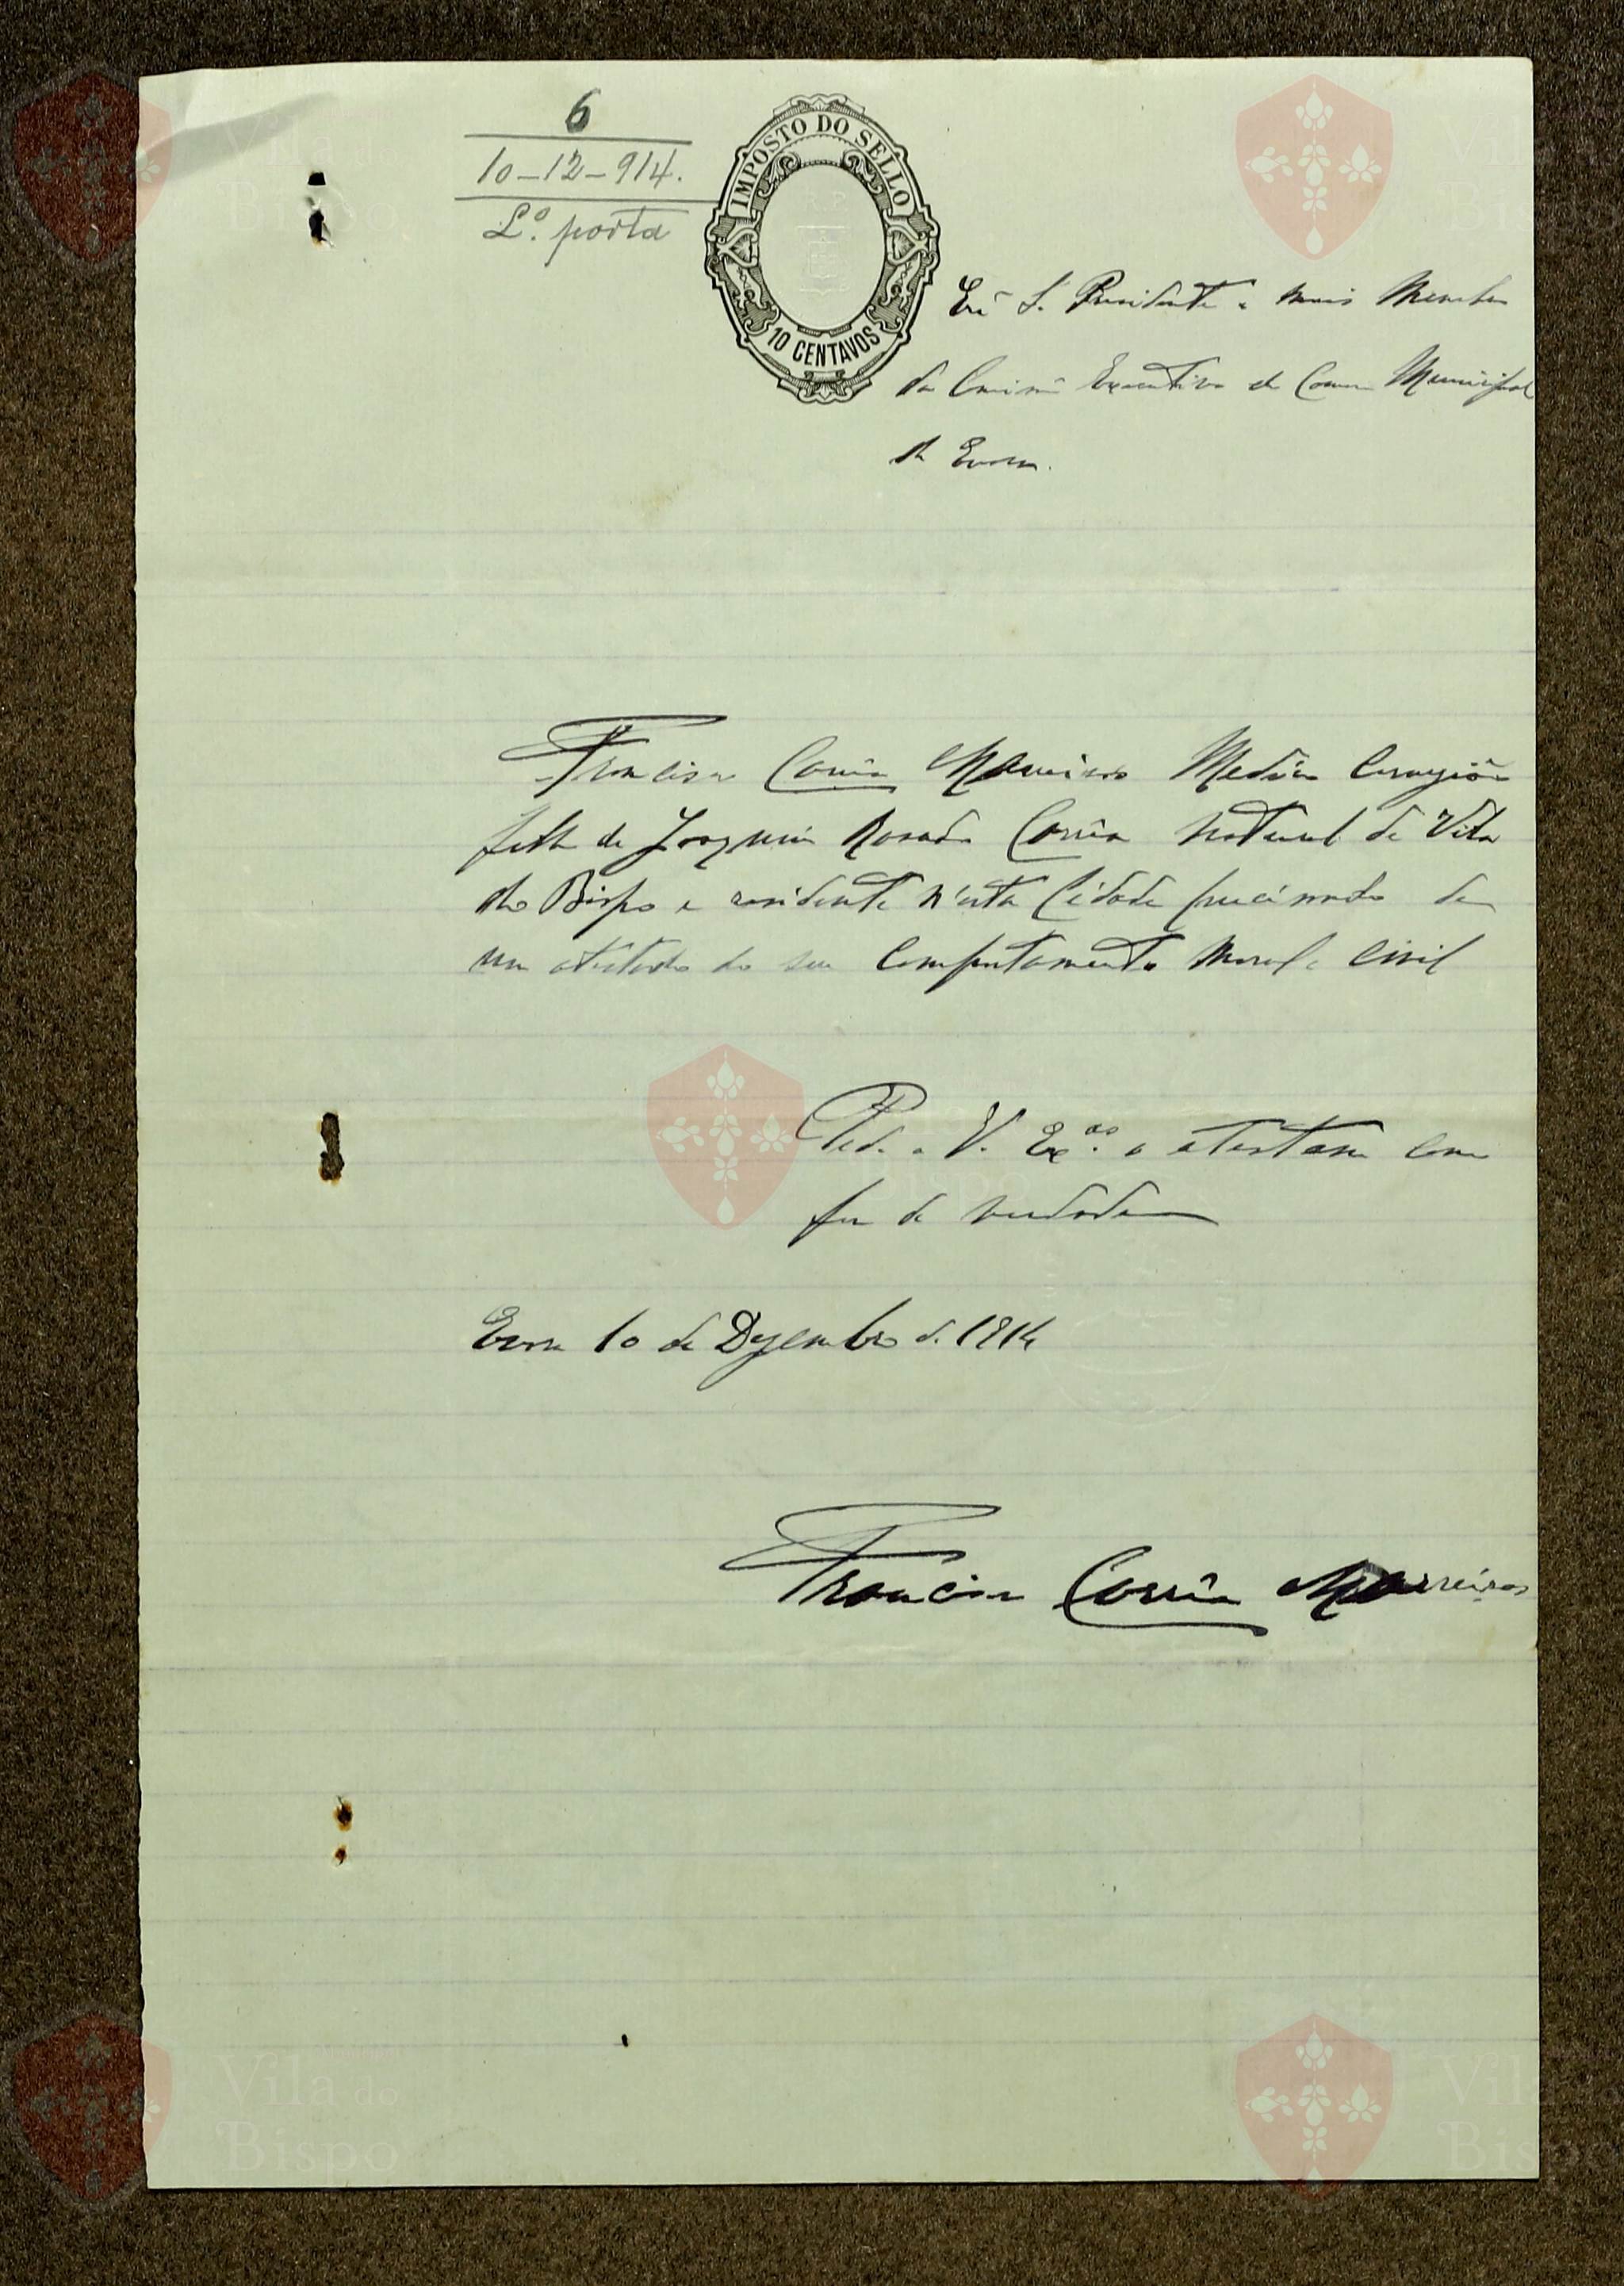 6
10-12-914.
L.º porta
IMPOSTO DO SELLO
10 CENTAVOS
S. Presidente e mais Membros
da Executiva da Camara Municipal
de Evora.
Francisco Corrêa Marreiros Medico Cirurgião
filho de Joaquim Rosado Corrêa natural de Vila
do Bispo e residente n'esta Cidade precisando de
um atestado do seu comportamento moral e civil
Pede a V. Ex.as o atestam como
fôr de verdade
Evora 10 de Dezembro de 1914
Francisco Corrêa Marreiros
Vila do
Bispo